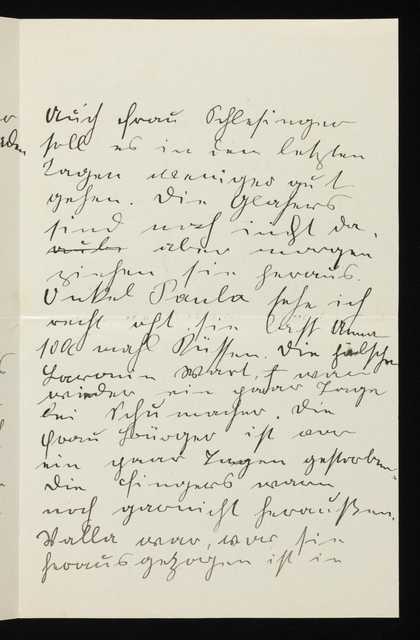 Auch Frau Schlesinger
soll es in den letzten
Tagen weniger gut
gehen. Die Glasers
sind noch nicht da,
aber morgen
ziehen sie heraus.
Onkel Paula sehe ich
recht oft. sie läßt Anna
100 mahl Küssen. Die falsche
Baronin Wart, war
wieder ein paar Tage
bei Schumacher. Die
Frau Bürger ist vor
ein paar Tagen gestorben.
Die Fingers waren
noch garnicht heraußen.
Walla war, wie sie
herausgezogen ist in